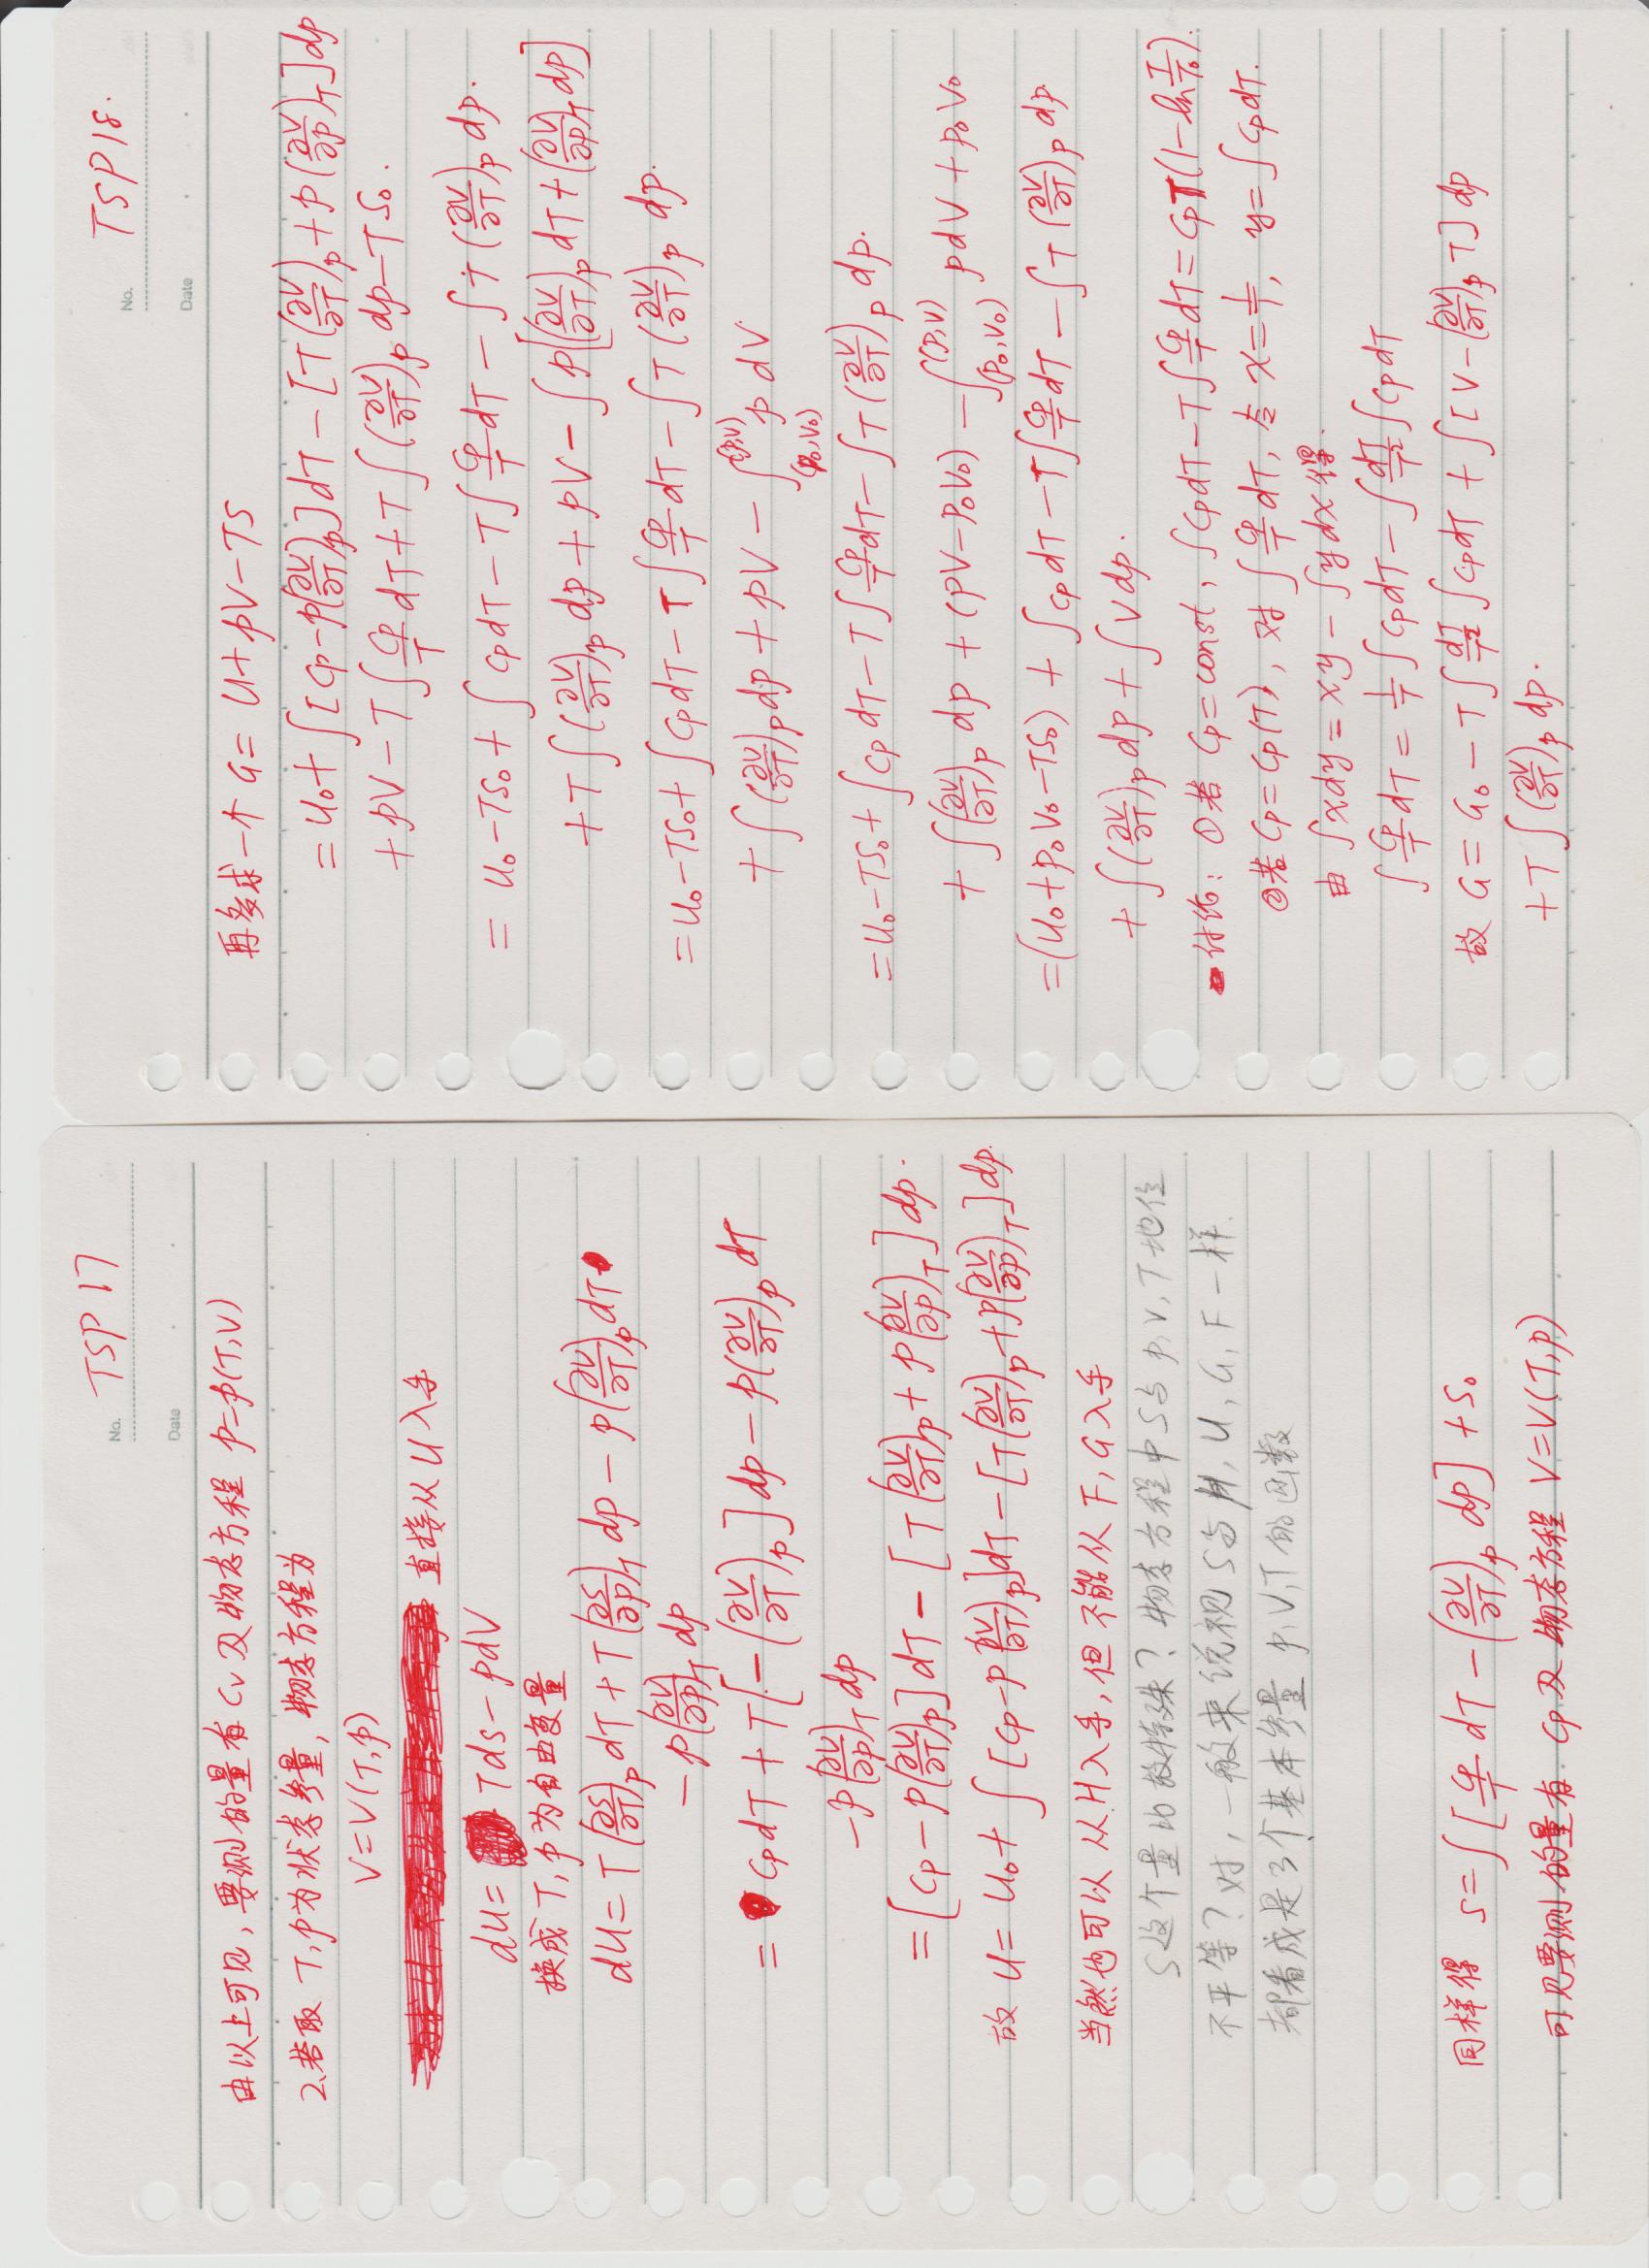 No. TSP 17
Date
由以上可见, 要测的量有 Cv 及物态方程 p=p(T,V)
2.若取 T,p为状态参量, 物态方程为
V=V(T,p)
直接从 U 入手
dU= Tds-pdV
换成 T,p为自由变量
dU= T(∂S/∂T)_p dT + T(∂S/∂p)_T dp - p(∂V/∂T)_p dT
-p(∂V/∂p)_T dp
= Cp dT + T[-(∂V/∂T)_p] dp - p(∂V/∂T)_p dT
-p(∂V/∂p)_T dp
=[Cp - p(∂V/∂T)_p] dT - [T(∂V/∂T)_p + p(∂V/∂p)_T] dp.
故 U= U₀+ ∫[Cp-p(∂V/∂T)_p]dT-[T(∂V/∂T)_p+p(∂V/∂p)_T]dp.
当然也可以 从 H 入手, 但 不能从 F, G 入手
S这个量比较特殊? 物态方程中 S与 p,V,T 地位
不平等? 对, 一般来说视 S与 H, U, G, F 一样.
都看成是 3个基本参量 p,V,T 的函数
同样得 S=∫[Cp/T dT-(∂V/∂T)_p dp] + S₀
可见要测的量有 Cp 及 物态方程 V=V(T,p)
No. TSP 18.
Date
再多求一个 G= U+pV-TS
= U₀+∫[Cp-p(∂V/∂T)_p]dT-[T(∂V/∂T)_p+p(∂V/∂p)_T]dp
+ pV - T∫Cp/T dT+T∫(∂V/∂T)_p dp-TS₀.
= U₀-TS₀+∫Cp dT-T∫Cp/T dT-∫T(∂V/∂T)_p dp.
+T∫(∂V/∂T)_p dp + pV-∫p[(∂V/∂T)_p dT+(∂V/∂p)_T dp]
=U₀-TS₀+∫Cp dT-T∫Cp/T dT-∫T(∂V/∂T)_p dp.
+∫(∂V/∂T)_p dp + pV-∫_(p₀,V₀)^(p,V) p dV
=U₀-TS₀+∫Cp dT-T∫Cp/T dT-∫T(∂V/∂T)_p dp.
+∫(∂V/∂T)_p dp + (pV-p₀V₀)-∫_(p₀,V₀)^(p,V) pdV+p₀V₀
=(U₀+p₀V₀-TS₀) + ∫Cp dT-T∫Cp/T dT-∫T(∂V/∂T)_p dp
+∫(∂V/∂T)_p dp+∫Vdp.
讨论: ①若 Cp=const, ∫Cp dT-T∫Cp/T dT=CpT(1-ln T/T₀).
②若 Cp=Cp(T), 对∫Cp/T dT, 令 x=1/T, y=∫Cp dT.
由 ∫xdy=xy-∫ydx得.
∫Cp/T dT=1/T∫Cp dT-∫dT/T²∫Cp dT
故 G=G₀-T∫dT/T²∫Cp dT+∫[V-(∂V/∂T)_p T] dp
+T∫(∂V/∂T)_p dp.